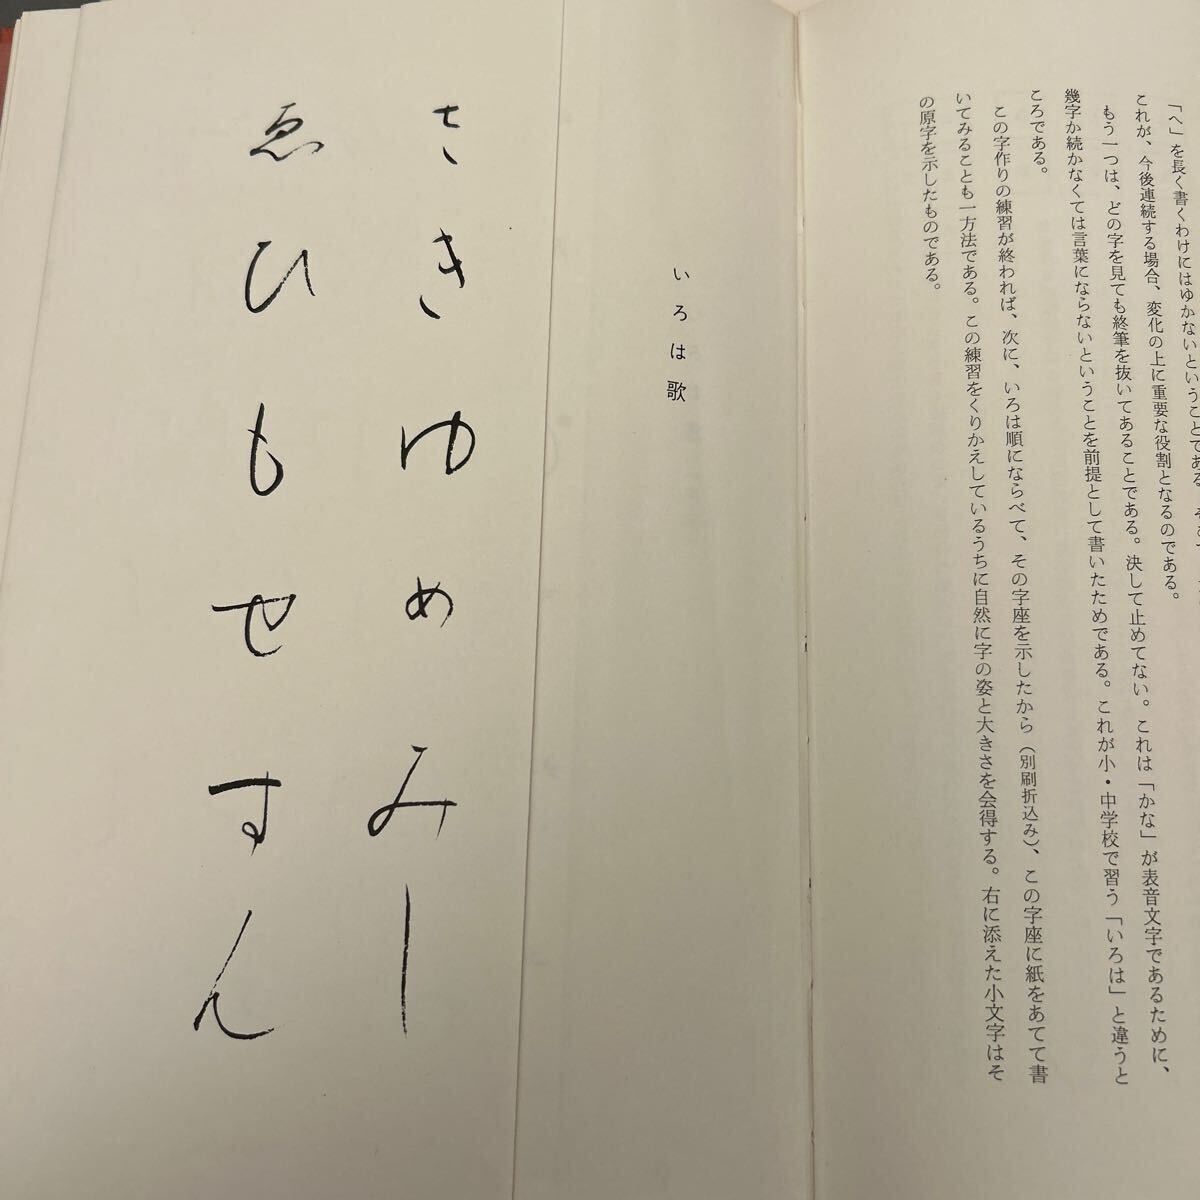 「へ」を長く書くわけにはゆかないということである。
これが、今後連続する場合、変化の上に重要な役割となるのである。
もう一つは、どの字を見ても終筆を抜いてあることである。決して止めてない。これは「かな」が表音文字であるために、
幾字か続かなくては言葉にならないということを前提として書いたためである。これが小・中学校で習う「いろは」と違うと
ころである。
この字作りの練習が終われば、次に、いろは順にならべて、その字座を示したから（別刷折込み）、この字座に紙をあてて書
いてみることも一方法である。この練習をくりかえしているうちに自然に字の姿と大きさを会得する。右に添えた小文字はそ
の原字を示したものである。
いろは歌
さきゆめみし
ゑひもせすん